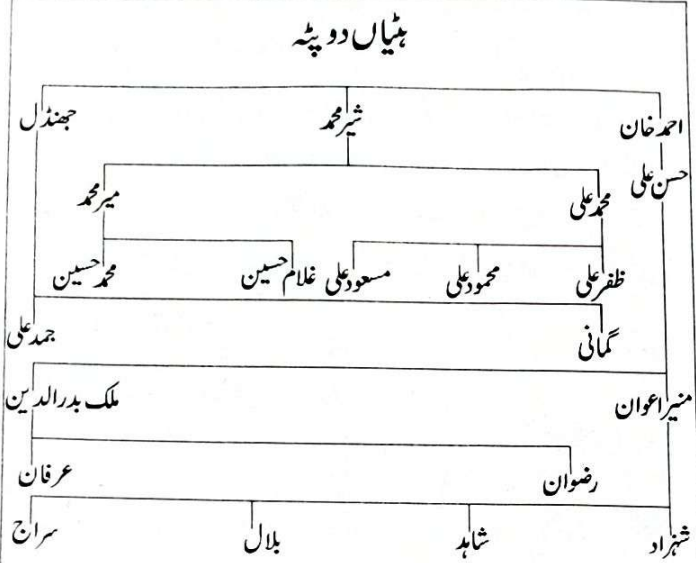 ہٹیاں دوپٹہ
احمد خان شیر محمد جھنڈل
حسن علی
محمد علی میر محمد
ظفر علی محمود علی مسعود علی غلام حسین محمد حسین
گمانی جمد علی
منیر اعوان ملک بدرالدین
رضوان عرفان
شہزاد شاہد بلال سراج